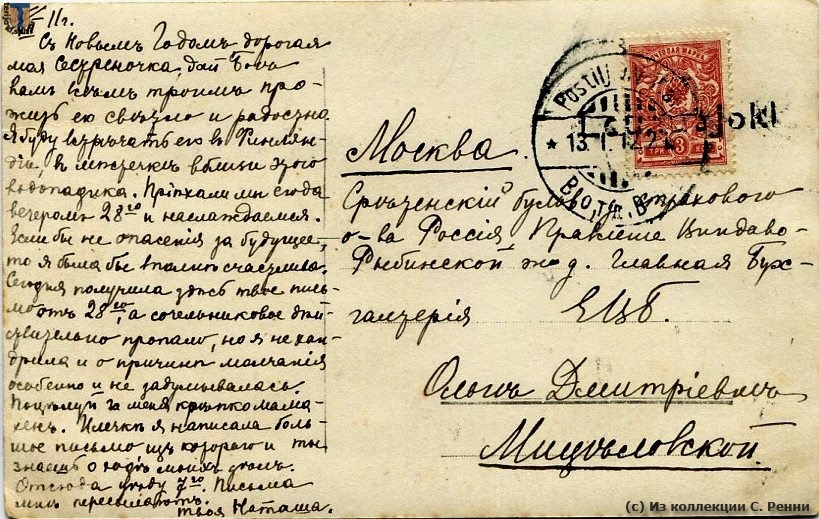 11 г.
Съ Новымъ Годомъ дорогая
моя Сестреночка, дай Богъ
вамъ всѣмъ троимъ про-
жить его свѣтло и радостно.
Я буду встрѣчать его въ Финлян-
діи, въ мѣстечкѣ выше этого
водопадика. Пріѣхали мы сюда
вечеромъ 28го и наслаждаемся.
Если бы не опасенія за будущее,
то я была бы вполнѣ счастлива.
Сегодня получила здѣсь твое пись-
мо отъ 28го, а сочельниковое дѣй-
ствительно пропало, но я не хан-
дрила и о причинѣ молчанія
особенно и не задумывалась.
Поцѣлуй за меня крѣпко мама-
я написала боль-
шое письмо изъ котораго и ты
знаешь о моихъ
Отсюда уѣду 7го. Письма
мнѣ пересылаютъ.
твоя Наташа.
Москва.
Срѣтенскій бульв. Страхового
о-ва Россія Правленіе Виндаво-
Рыбинской ж. д. Главная Бух-
галтерія ЕЦБ.
Ольгѣ Дмитріевнѣ
Мицѣловской.
13.I.12
(c) Из коллекции С. Ренни